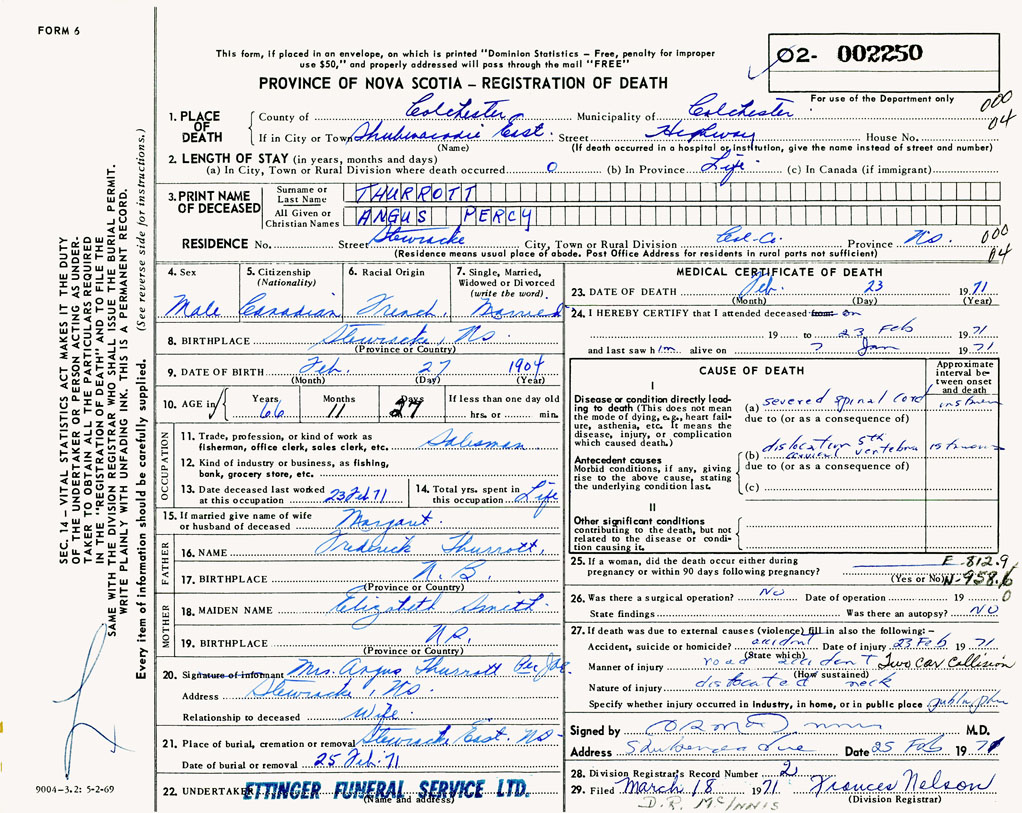 FORM 6
This form, if placed in an envelope, on which is printed "Dominion Statistics – Free, penalty for improper
use $50," and properly addressed will pass through the mail "FREE"
02- 002250
PROVINCE OF NOVA SCOTIA – REGISTRATION OF DEATH
For use of the Department only
000
04
1. PLACE OF DEATH
County of Colchester Municipality of Colchester
If in City or Town Shubenacadie East. Street Highway House No.
(Name) (If death occurred in a hospital or institution, give the name instead of street and number)
2. LENGTH OF STAY (in years, months and days)
(a) In City, Town or Rural Division where death occurred 0 (b) In Province Life (c) In Canada (if immigrant)
3. PRINT NAME OF DECEASED
Surname or Last Name THURROTT
All Given or Christian Names ANGUS PERCY
RESIDENCE No. Street Stewiacke City, Town or Rural Division Col-Co. Province NS. 000
(Residence means usual place of abode. Post Office Address for residents in rural parts not sufficient) 04
4. Sex
Male
5. Citizenship
(Nationality)
Canadian
6. Racial Origin
French
7. Single, Married,
Widowed or Divorced
(write the word)
Married
8. BIRTHPLACE Stewiacke, NS
(Province or Country)
9. DATE OF BIRTH Feb. 27 1904
(Month) (Day) (Year)
10. AGE in
Years Months Days If less than one day old
66 11 27 hrs. or min.
OCCUPATION
11. Trade, profession, or kind of work as
fisherman, office clerk, sales clerk, etc. Salesman
12. Kind of industry or business, as fishing,
bank, grocery store, etc.
13. Date deceased last worked
at this occupation 23 Feb 71
14. Total yrs. spent in
this occupation Life
15. If married give name of wife
or husband of deceased Margaret.
FATHER
16. NAME Frederick Thurrott,
17. BIRTHPLACE N.B.
(Province or Country)
MOTHER
18. MAIDEN NAME Elizabeth Smith.
19. BIRTHPLACE
(Province or Country)
20. Signature of informant Mrs. Angus Thurrott Per
Address Stewiacke, NS.
Relationship to deceased Wife.
21. Place of burial, cremation or removal Stewiacke East. NS-
Date of burial or removal 25 Feb. 71
22. UNDERTAKER ETTINGER FUNERAL SERVICE LTD.
(Name and address)
MEDICAL CERTIFICATE OF DEATH
23. DATE OF DEATH Feb. 23 1971
(Month) (Day) (Year)
24. I HEREBY CERTIFY that I attended deceased from on
19 to 23 Feb 1971
and last saw him alive on ? Jan 1971
CAUSE OF DEATH
Approximate interval between onset and death
I
Disease or condition directly leading to death (This does not mean the mode of dying, e.g., heart failure, asthenia, etc. It means the disease, injury, or complication which caused death.)
(a) severed spinal cord
due to (or as a consequence of)
Antecedent causes
Morbid conditions, if any, giving rise to the above cause, stating the underlying condition last.
(b) dislocation 5th
cervical vertebra
due to (or as a consequence of)
(c)
II
Other significant conditions
contributing to the death, but not related to the disease or condition causing it.
25. If a woman, did the death occur either during
pregnancy or within 90 days following pregnancy?
(Yes or No)
E-812.9
N-958.6
0
26. Was there a surgical operation? NO Date of operation 19
State findings Was there an autopsy? NO
27. If death was due to external causes (violence) fill in also the following: –
Accident, suicide or homicide? accident Date of injury 23 Feb 1971
(State which)
Manner of injury road accident Two car Collision
(How sustained)
Nature of injury dislocated neck
Specify whether injury occurred in industry, in home, or in public place
Signed by M.D.
Address Shubenacadie Date 25 Feb 1971
28. Division Registrar's Record Number 2
29. Filed March 18 1971 Frances Nelson
(Division Registrar)
D.R. McINNIS
SEC. 14 – VITAL STATISTICS ACT MAKES IT THE DUTY
OF THE UNDERTAKER OR PERSON ACTING AS UNDER-
TAKER TO OBTAIN ALL THE PARTICULARS REQUIRED
IN THE "REGISTRATION OF DEATH" AND TO FILE THE
SAME WITH THE DIVISION REGISTRAR WHO SHALL ISSUE THE BURIAL PERMIT.
WRITE PLAINLY WITH UNFADING INK. THIS IS A PERMANENT RECORD.
Every item of information should be carefully supplied. (See reverse side for instructions.)
9004-3.2: 5-2-69